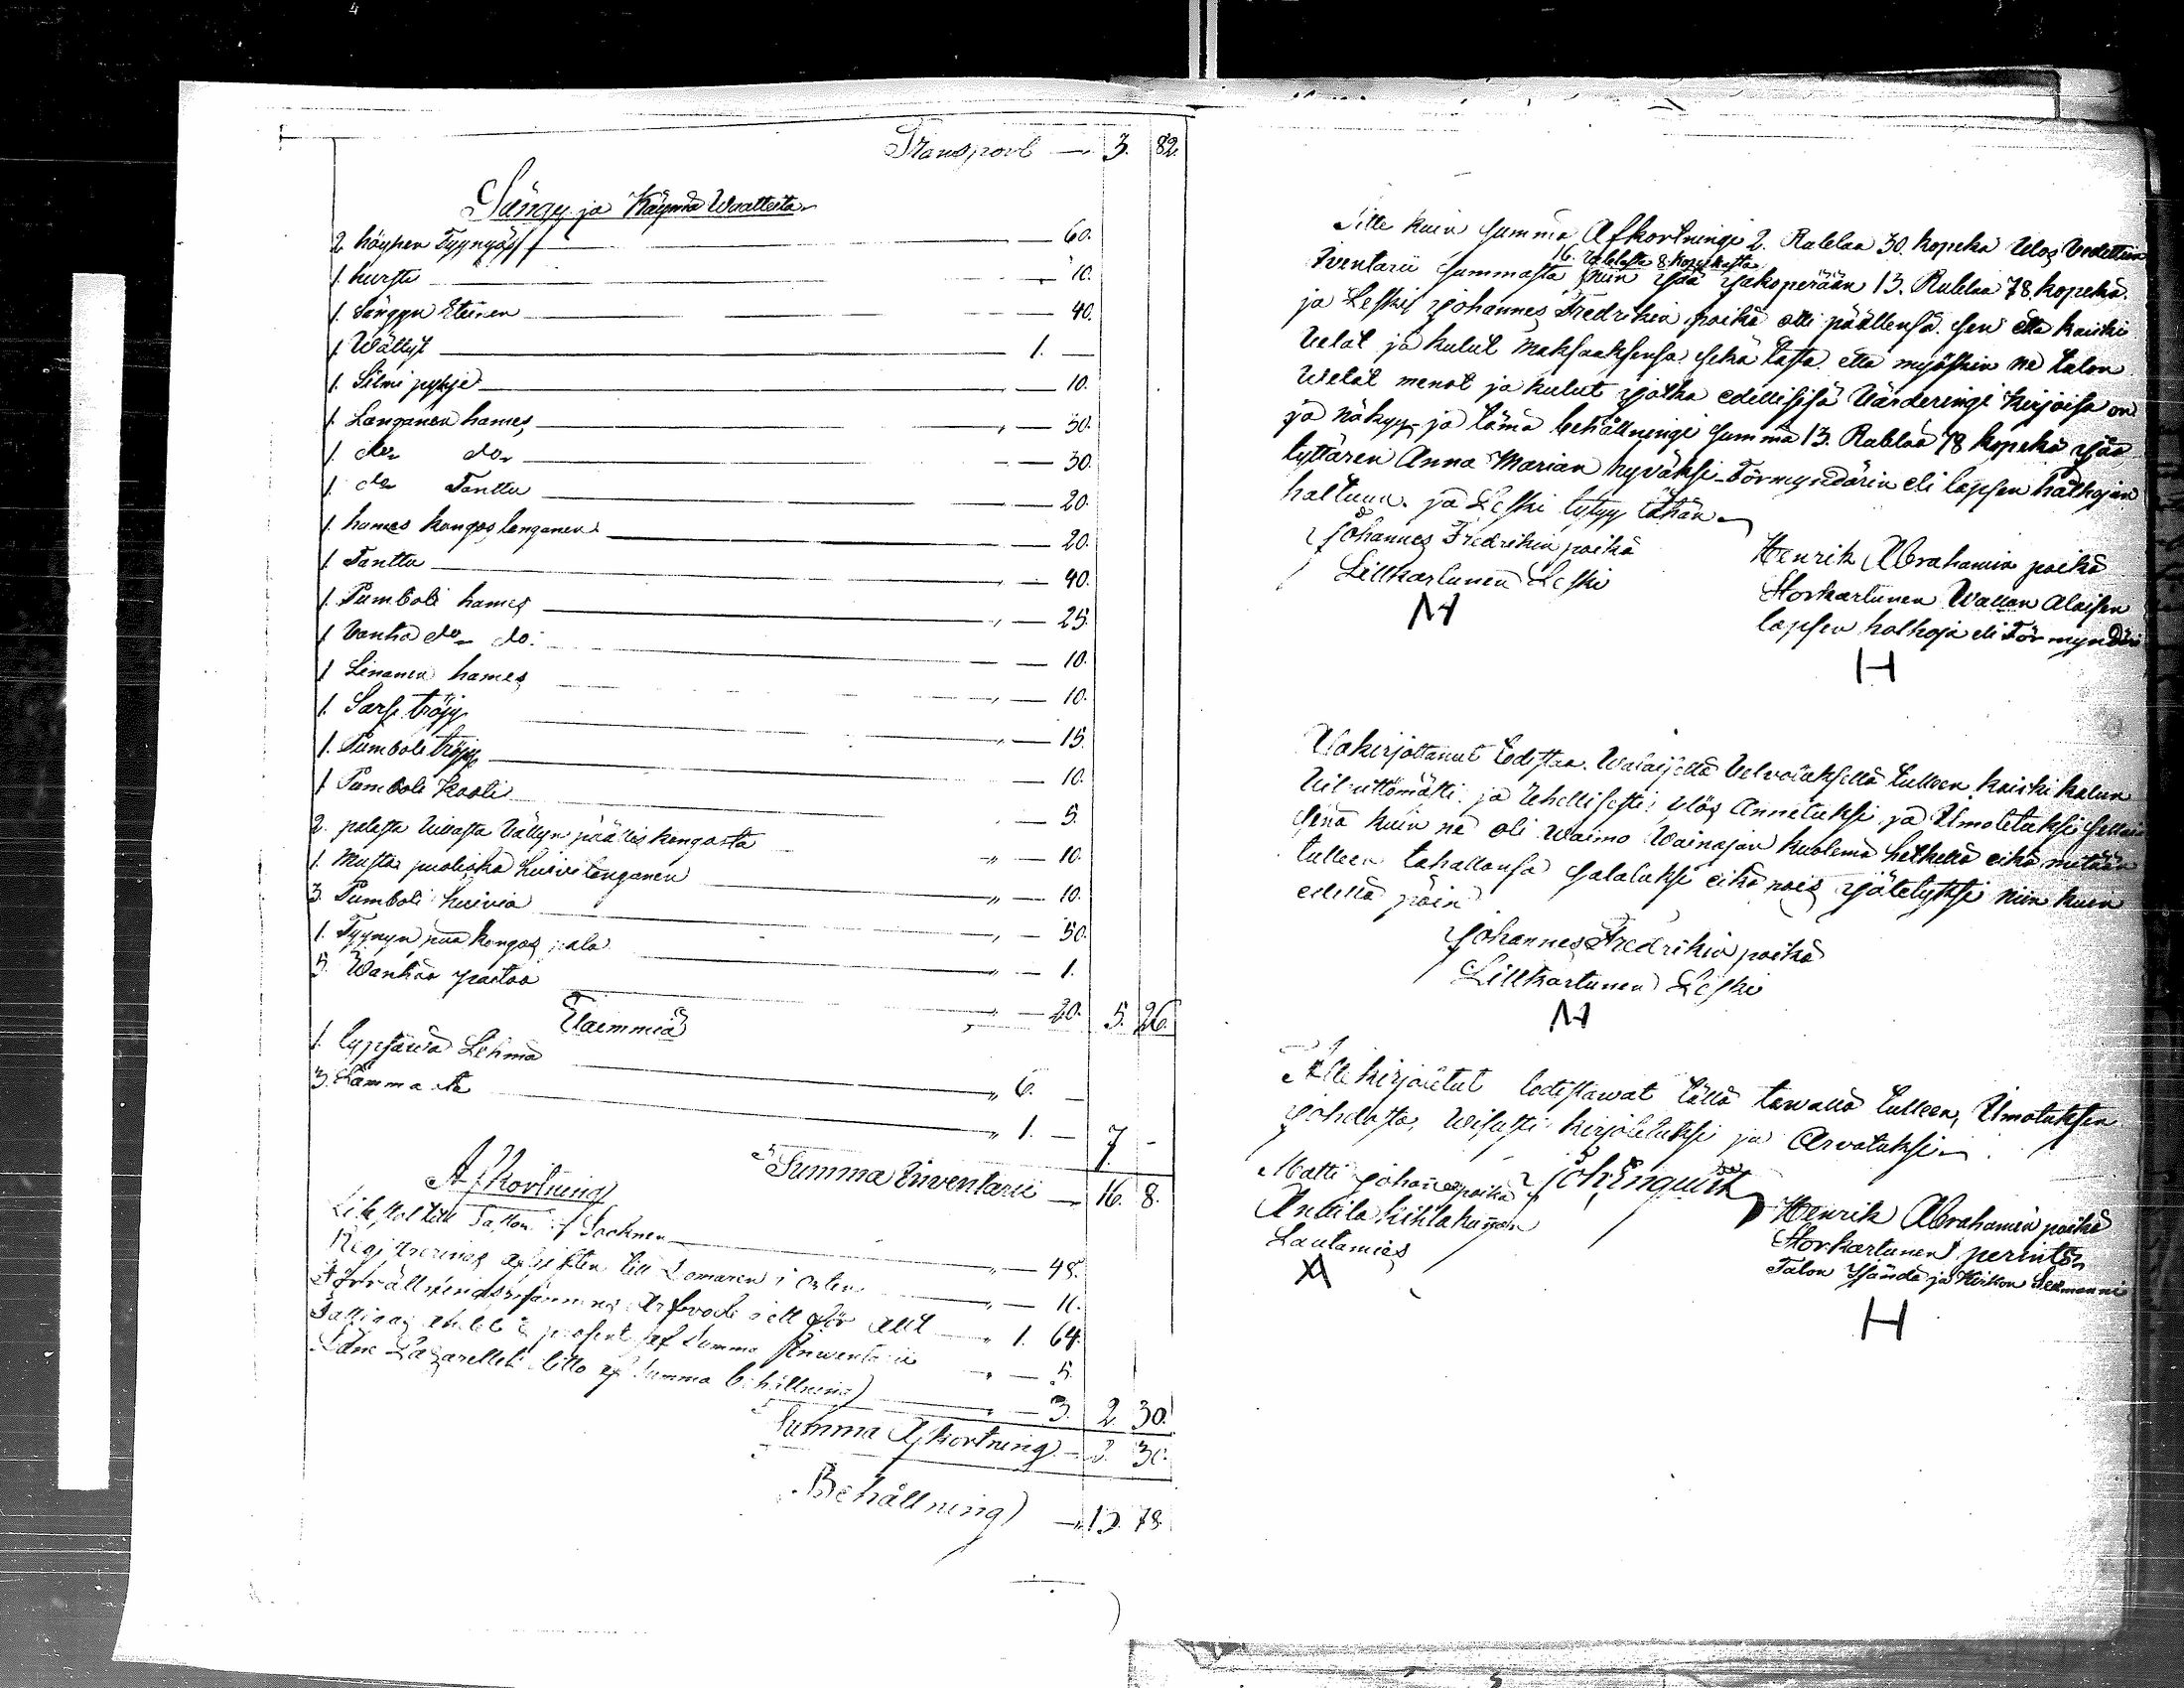 Transport — 3. 82.
Sängy ja Käymä Waatteita
2 höyhen Tyynyäs — 60.
1. hurstu — 10.
1. Sängyn Eteinen — 40.
1 Wällyt — 1. —
1. Silmi pyhje — 10.
1. Langanen hames — 30.
1. do do — 30.
1 do Tanttu — 20.
1 hames kangas langanen — 20.
1 Tanttu — 40.
1. Pumboli hames — 25.
1 Vanha do do. — 10.
1 Linanen hames — 10.
1. Sarsi tröjy — 15.
1. Pumboli tröjy — 10.
1 Pumboli Kaoli — 5.
2. palasta Villasta Vällyn päälis kangasta „ — 10.
1. Musta puolisko huivi langanen „ — 10.
3. Pumboli huivia „ — 50.
1. Tyynyn puu kangas pala „ — 1.
5. Wanhaa paitaa „ — 20. 5. 26.
Elaimmiä
1. lypsäwä Lehmä „ 6. —
3. Lamma sta „ 1. — 7. —
Summa Inventarii — 16. 8.
Afkortning
till Socknen „ — 48.
Registrerings afgiften till Domaren „ — 11.
arfvode allt „ 1. 64.
procent af Summa Inventarii „ — 5.
Lazarettet ditto af Summa behållning „ — 3. 2. 30.
Summa Afkortning — 2. 30.
Behållning — „ 13. 78.
Sitte kuin summa Afkortningi 2. Rublaa 30. kopeka Ulos Vedettiin
16. Rublasta 8 kopekasta
Iventarii summasta niin Jää Jakoperään 13. Rublaa 78. kopeka.
ja Leski Johannes Fredrikin poika otti päällensä sen että kaikki
Velat ja kulut maksaaksensa sekä tästä että myöskin ne talon
Welat menot ja kulut Jotka edellisisä Värderingi kirjoisa on
ja näkyy, ja tämä behållningi summa 13. Rublaa 78 kopeka Jää
tyttären Anna Marian hyväksi Förmyndärin eli lapsen halhojan
haltuun. ja Leski tytyy tähän
Johannes Fredrikin poika
Lillkartunen Leski
Henrik Abrahamin poika
Storkartunen Wallan Alaisen
lapsen halhoja eli Förmyndäri
H
Alakirjottanut todistaa Walaisella Velvoituksella tulleen kaikki kalun
Vilpittömästi ja rehellisesti Ulos Annetuksi ja Ilmoitetuksi sellaisena
kuin ne oli waimo Wainajan kuolema hetkellä eikä mitään
tulleen tahallansa salatuksi eikä pois Jätetyksi niin kuin
edellä päin
Johannes Fredrikin poika
Lillkartunen Leski
Alle kirjoitetut todistawat tällä tawalla tulleen, Ilmotuksen
Johdosta, Wisusti kirjoitetuksi ja Arvatuksi
Matti Johan poika
Anttila kihlakunnan
Lautamies
Joh: Enqwist
Henrik Abrahamin poika
Storkartunen perintö
Talon Isändä ja Kirkon Sexmanni
H